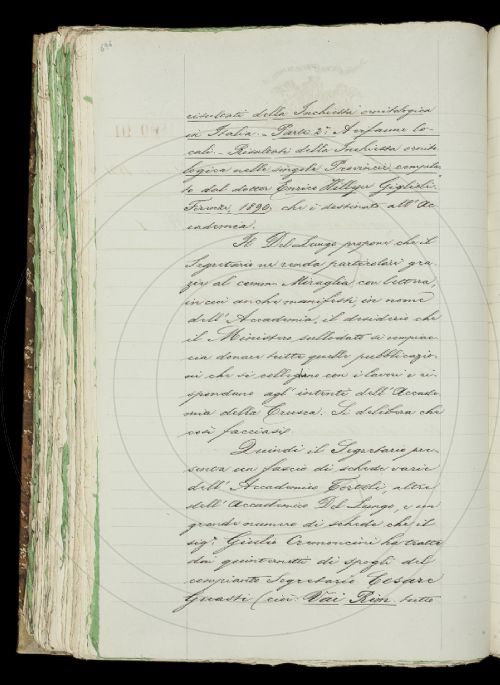 risultati della Inchiesta ornitologica
in Italia. - Parte 2ª: Avifaune lo-
cali - Risultati della Inchiesta ornito-
logica nelle singole Provincie, compila-
to dal dottor Enrico Hillyer Giglioli.
Firenze, 1890, che è destinato all'Ac-
cademia.
Il Del Lungo propone che il
Segretario ne renda particolari gra-
zie al comm. Miraglia con lettera,
in cui anche manifesti, in nome
dell'Accademia, il desiderio che
il Ministero sullodato si compiac-
cia donare tutte quelle pubblicazio-
ni che si collegano con i lavori e ri-
spondano agl'intenti dell'Accade-
mia della Crusca. Si delibera che
così facciasi.
Quindi il Segretario pre-
senta un fascio di schede varie
dell'Accademico Tortoli, altre
dell'Accademico Del Lungo, e un
grande numero di schede che il
sig. Giulio Cremoncini ha tratte
dai quinternetti di spogli del
compianto Segretario Cesare
Guasti (cioè: Vai Rim. tutte